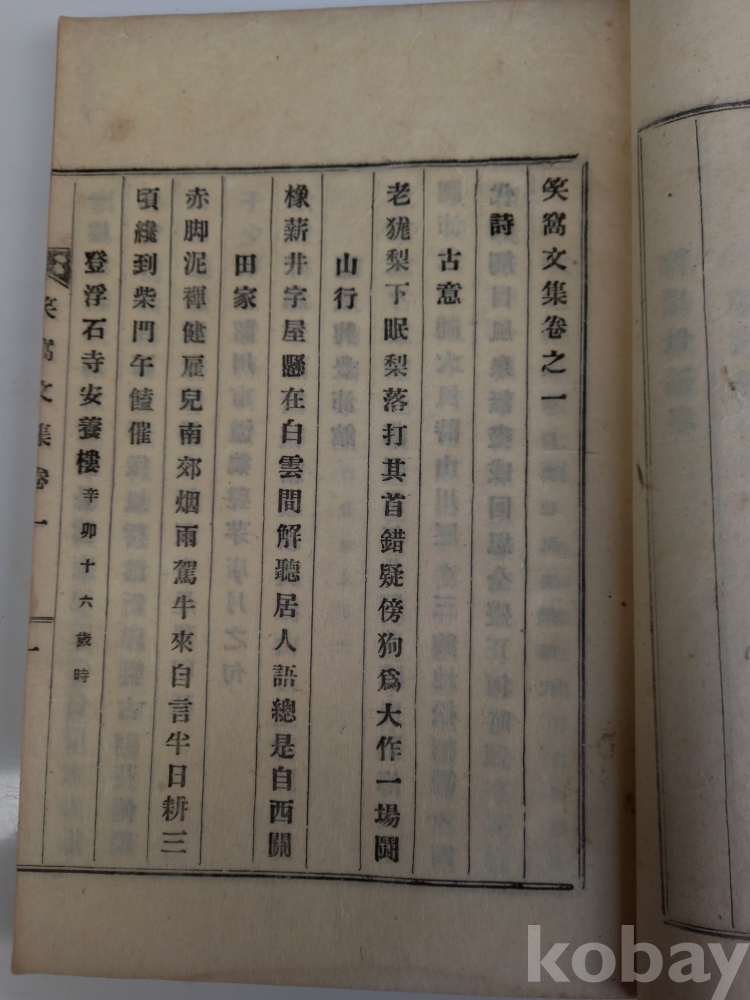 笑窩文集卷之一
詩
古意
老狵梨下眠梨落打其首錯疑傍狗爲大作一場鬪
山行
橡薪井字屋懸在白雲間解聽居人語總是自西關
田家
赤脚泥褌健雇兒南郊烟雨駕牛來自言半日耕三
頃纔到柴門午饁催
登浮石寺安養樓 辛卯十六歲時
笑窩文集卷一
一
kobay